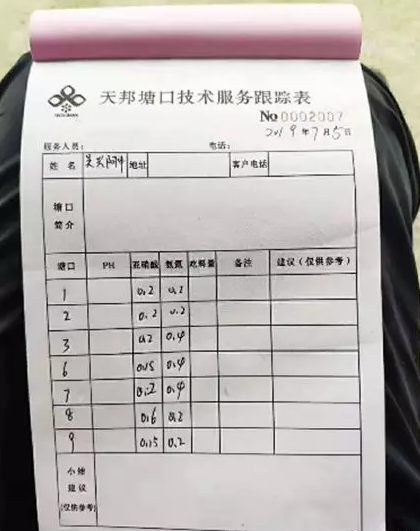 天邦塘口技术服务跟踪表
No 0002007
2019年7月5日
服务人员: 电话:
姓名 地址 客户电话
塘口简介
塘口 PH 亚硝酸 氨氮 吃料量 备注 建议(仅供参考)
1 0.2 0.2
2 0.2 0.2
3 0.2 0.4
6 0.4
7 0.2 0.4
8 0.6 0.2
9 0.15 0.2
小结
建议
(仅供参考)